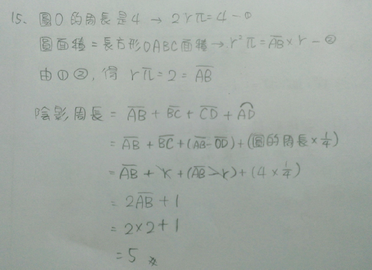 15. 圓O的周長是4 → 2rπ=4-①
圓面積=長方形OABC面積 → r²π=AB×r-②
由①②,得 rπ=2=AB
陰影周長 = AB + BC + CD + AD
= AB + BC + (AB-OD) + (圓的周長×1/4)
= AB + r + (AB-r) + (4×1/4)
= 2AB + 1
= 2×2+1
= 5